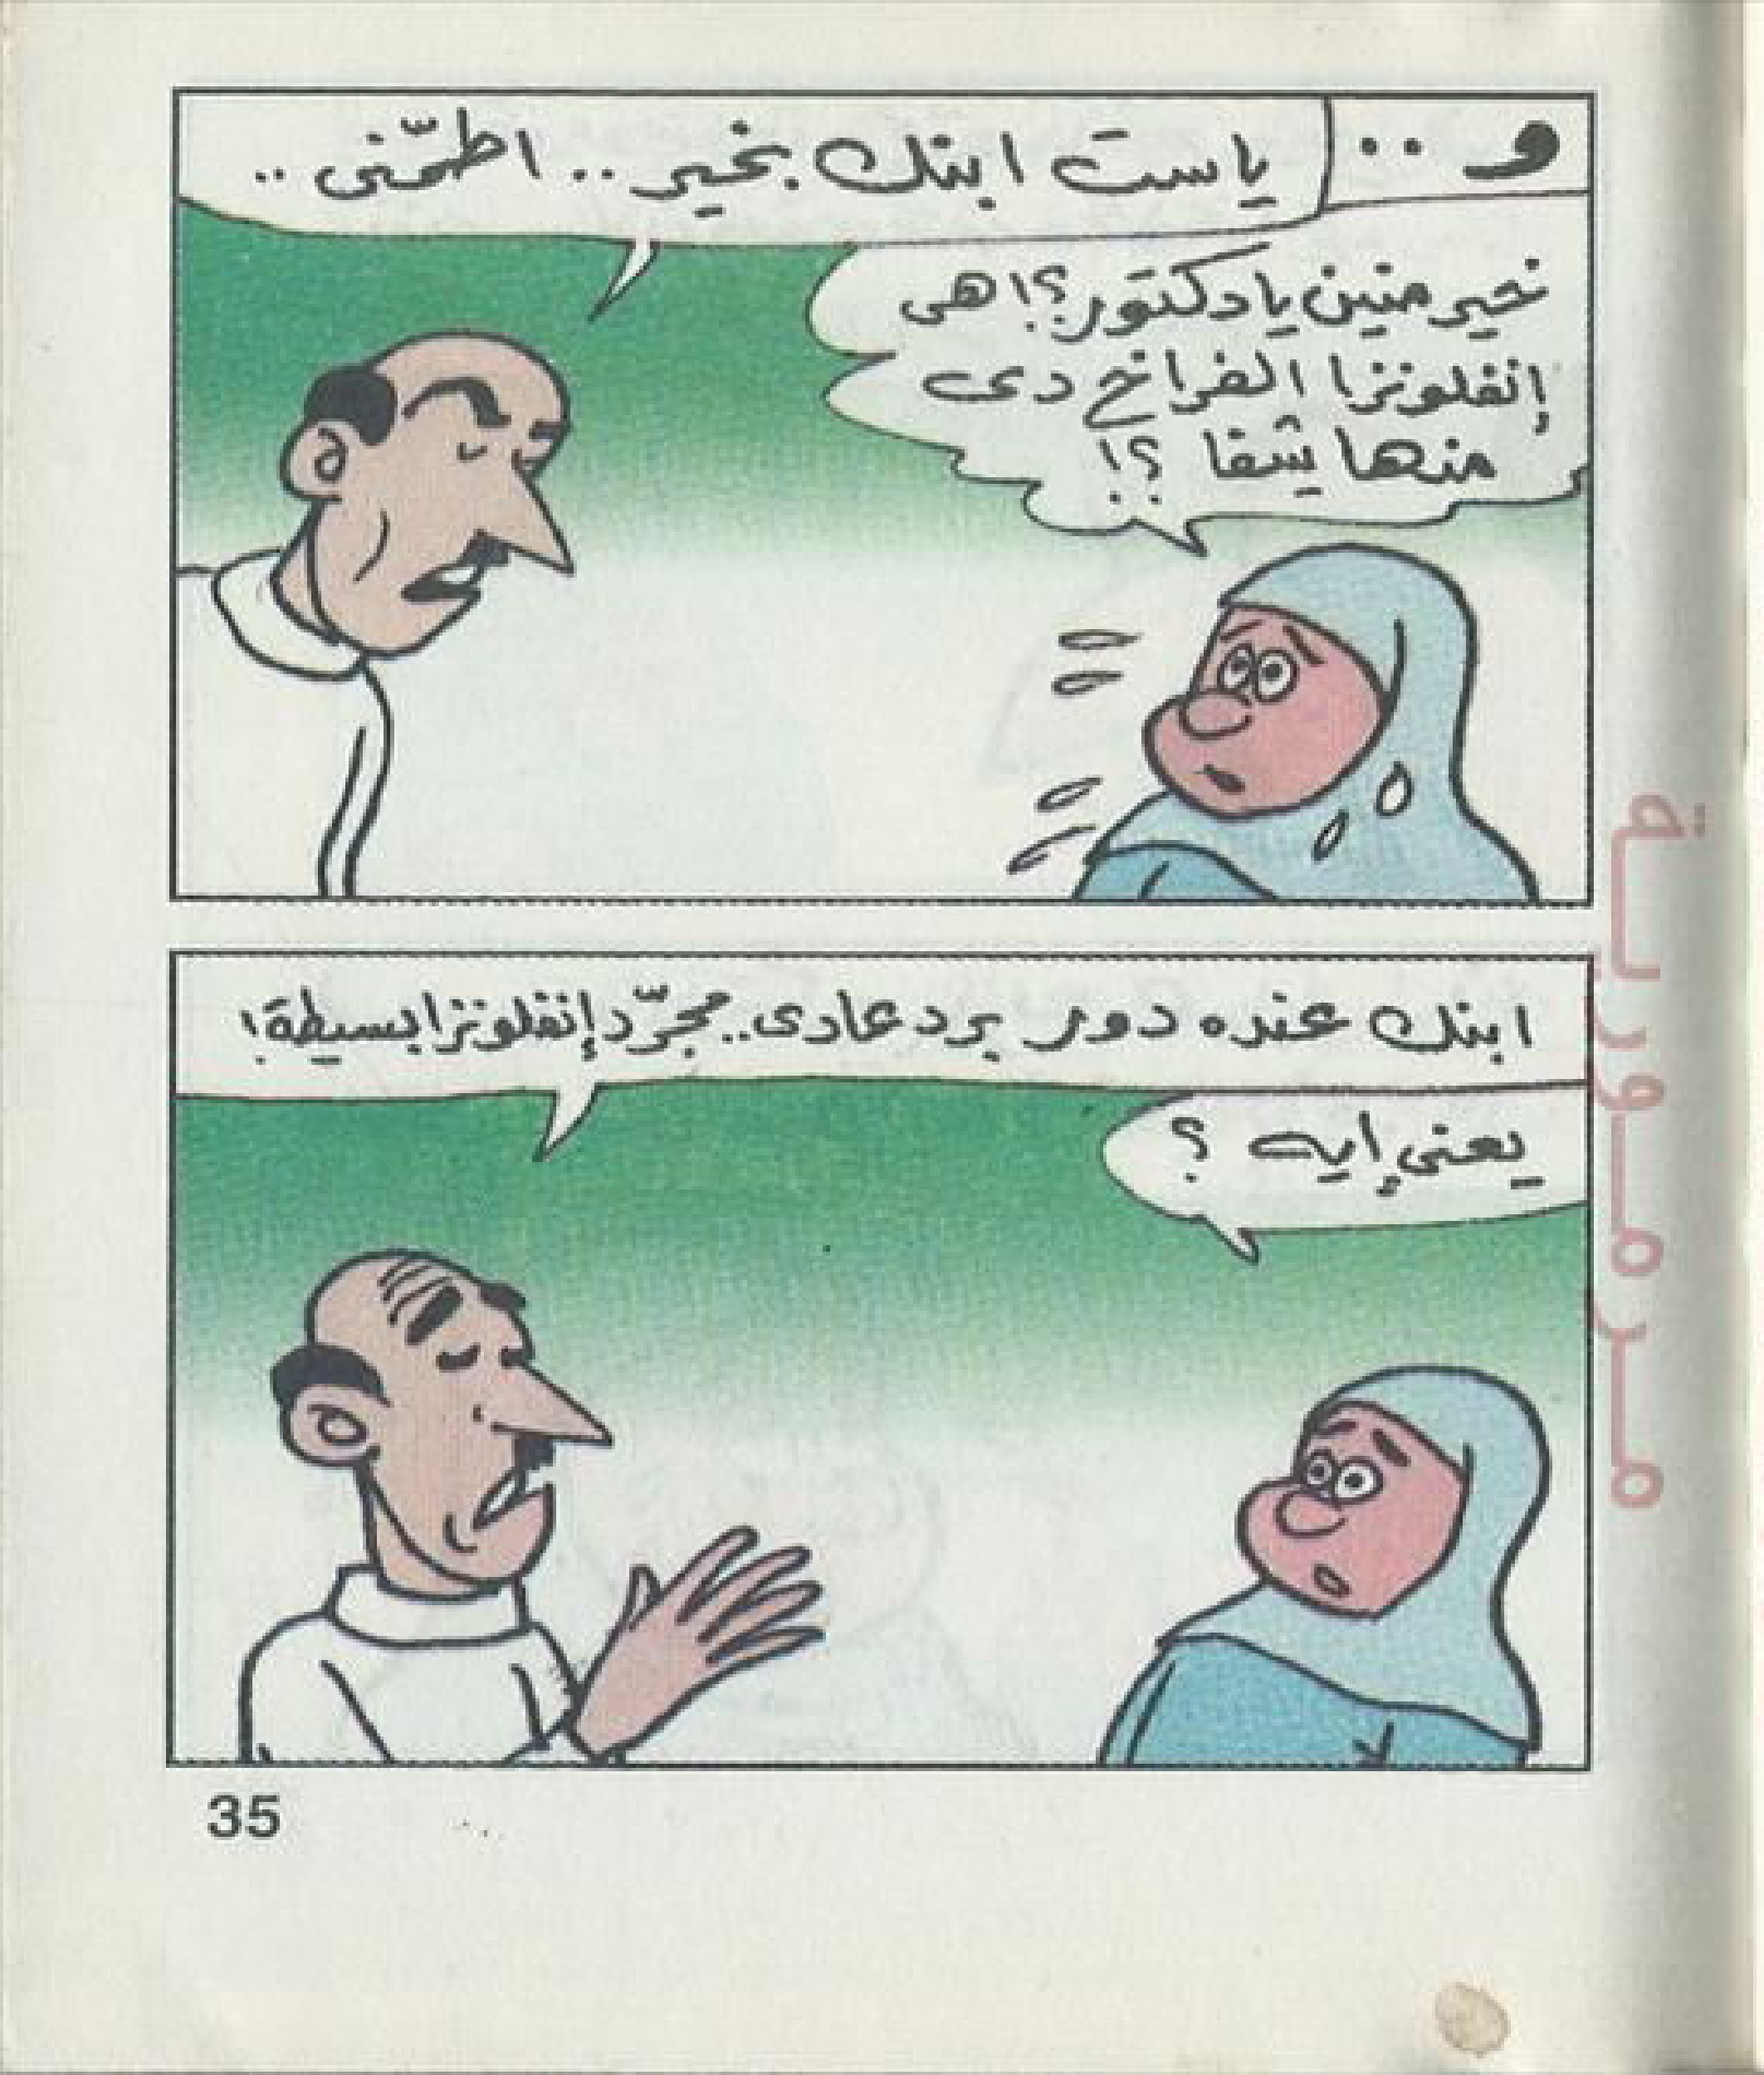 و ..
ياست ابنك بخير .. اطمّنى ..
خير منين يادكتور؟! هى
إنفلونزا الفراخ دى
منها شفا ؟!
ابنك عنده دور برد عادى.. مجرّد إنفلونزا بسيطة!
يعنى إيه ؟
35
مرمورية